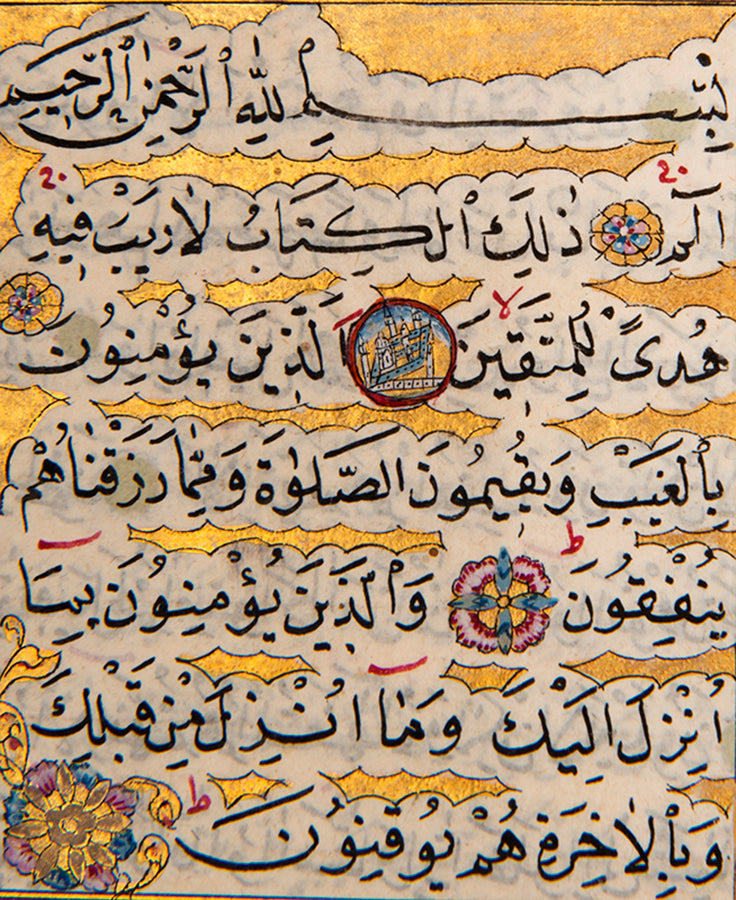 بِسْمِ ٱللهِ ٱلرَّحْمٰنِ ٱلرَّحِيمِ
الٓمٓ ذٰلِكَ ٱلْكِتَابُ لَا رَيْبَ فِيهِ
هُدًى لِلْمُتَّقِينَ ٱلَّذِينَ يُؤْمِنُونَ
بِٱلْغَيْبِ وَيُقِيمُونَ الصَّلٰوةَ وَمِمَّا رَزَقْنَاهُمْ
يُنْفِقُونَ وَٱلَّذِينَ يُؤْمِنُونَ بِمَا
اُنْزِلَ اِلَيْكَ وَمَا اُنْزِلَ مِنْ قَبْلِكَ
وَبِٱلْاٰخِرَةِ هُمْ يُوقِنُونَ